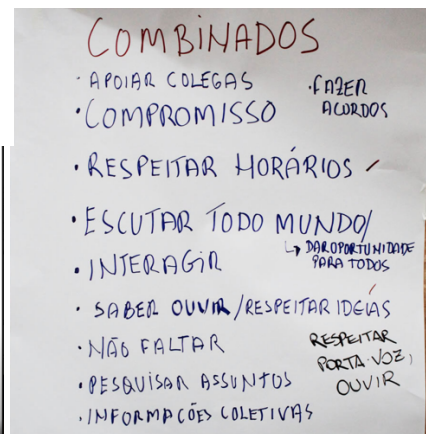 COMBINADOS
· APOIAR COLEGAS
· FAZER
ACORDOS
· COMPROMISSO
· RESPEITAR HORÁRIOS
· ESCUTAR TODO MUNDO/
↳ DAR OPORTUNIDADE
PARA TODOS
· INTERAGIR
· SABER OUVIR/RESPEITAR IDEIAS
· NÃO FALTAR
RESPEITAR
PORTA-VOZ,
OUVIR
· PESQUISAR ASSUNTOS
· INFORMAÇÕES COLETIVAS